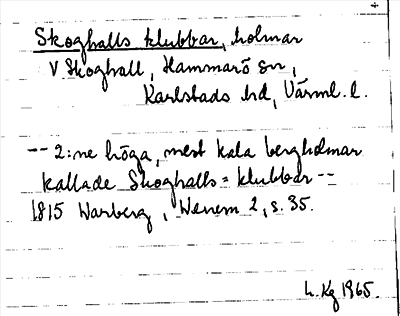 Skoghalls klubbar, holmar
V Skoghall, Hammarö sn,
Karlstads hd, Värml. l.
-- 2:ne höga, mest kala bergholmar
kallade Skoghalls=klubbar --
1815 Warberg, Wenern 2, s. 35.
L. Kg 1965.